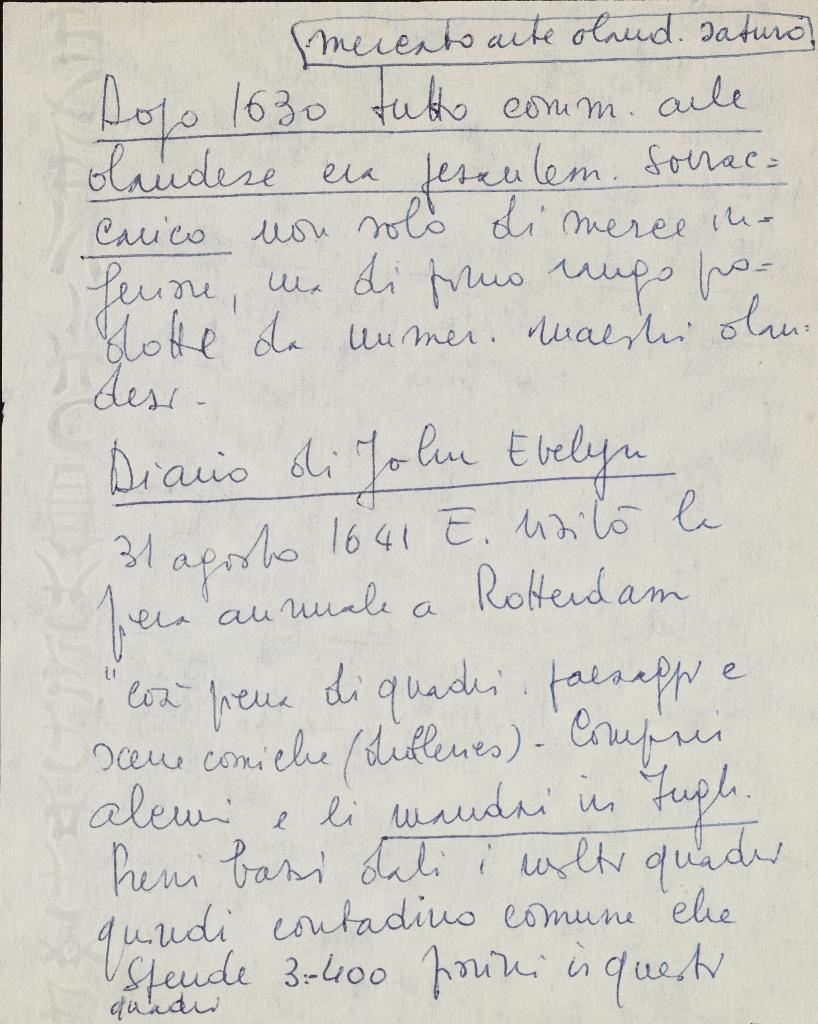 mercato arte oland. saturo
Dopo 1630 tutto comm. arte
olandese era pesantem. sovrac=
carico non solo di merce in-
feriore, ma di primo rango pro=
dotte da numer. maestri olan=
desi -
Diario di John Evelyn
31 agosto 1641 E. visitò la
fiera annuale a Rotterdam
"così piena di quadri. paesaggi e
scene comiche (drolleries) - Comprai
alcuni e li mandai in Ingh.
Prezzi bassi dati i molti quadri
quindi contadino comune che
spende 3-400 fiorini in questi
quadri